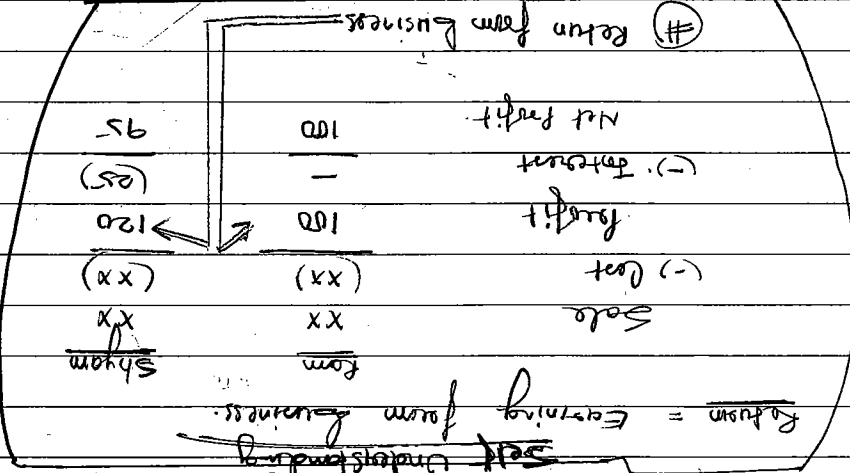 Self Understanding
Return = Earning from business.
Ram Shyam
Sale XX XX
(-) Cost (XX) (XX)
Profit 100 120
(-) Interest — (25)
Net Profit. 100 95
# Retun form business